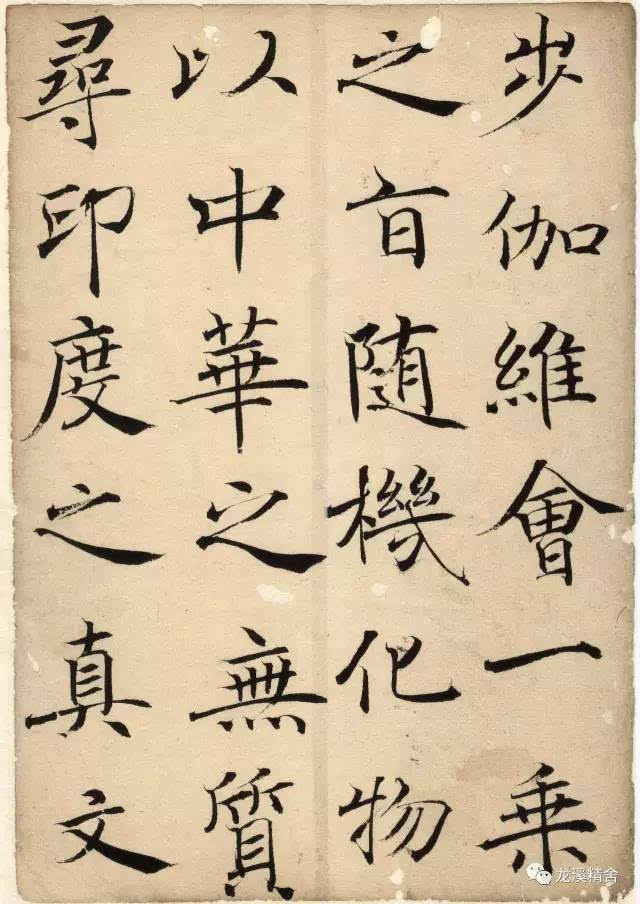 步伽維會一乘
之旨随機化物
以中華之無質
尋印度之真文
龙溪精舍